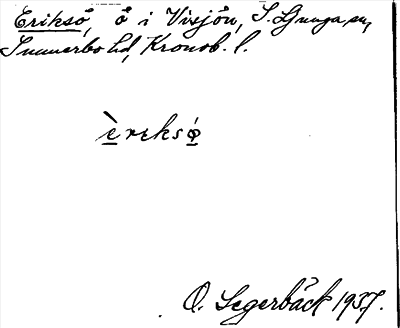 Eriksö, ö i Visjön, S. Ljunga sn,
Sunnerbo hd, Kronob. l.
èrıksǿ
O. Segerbäck 1937.